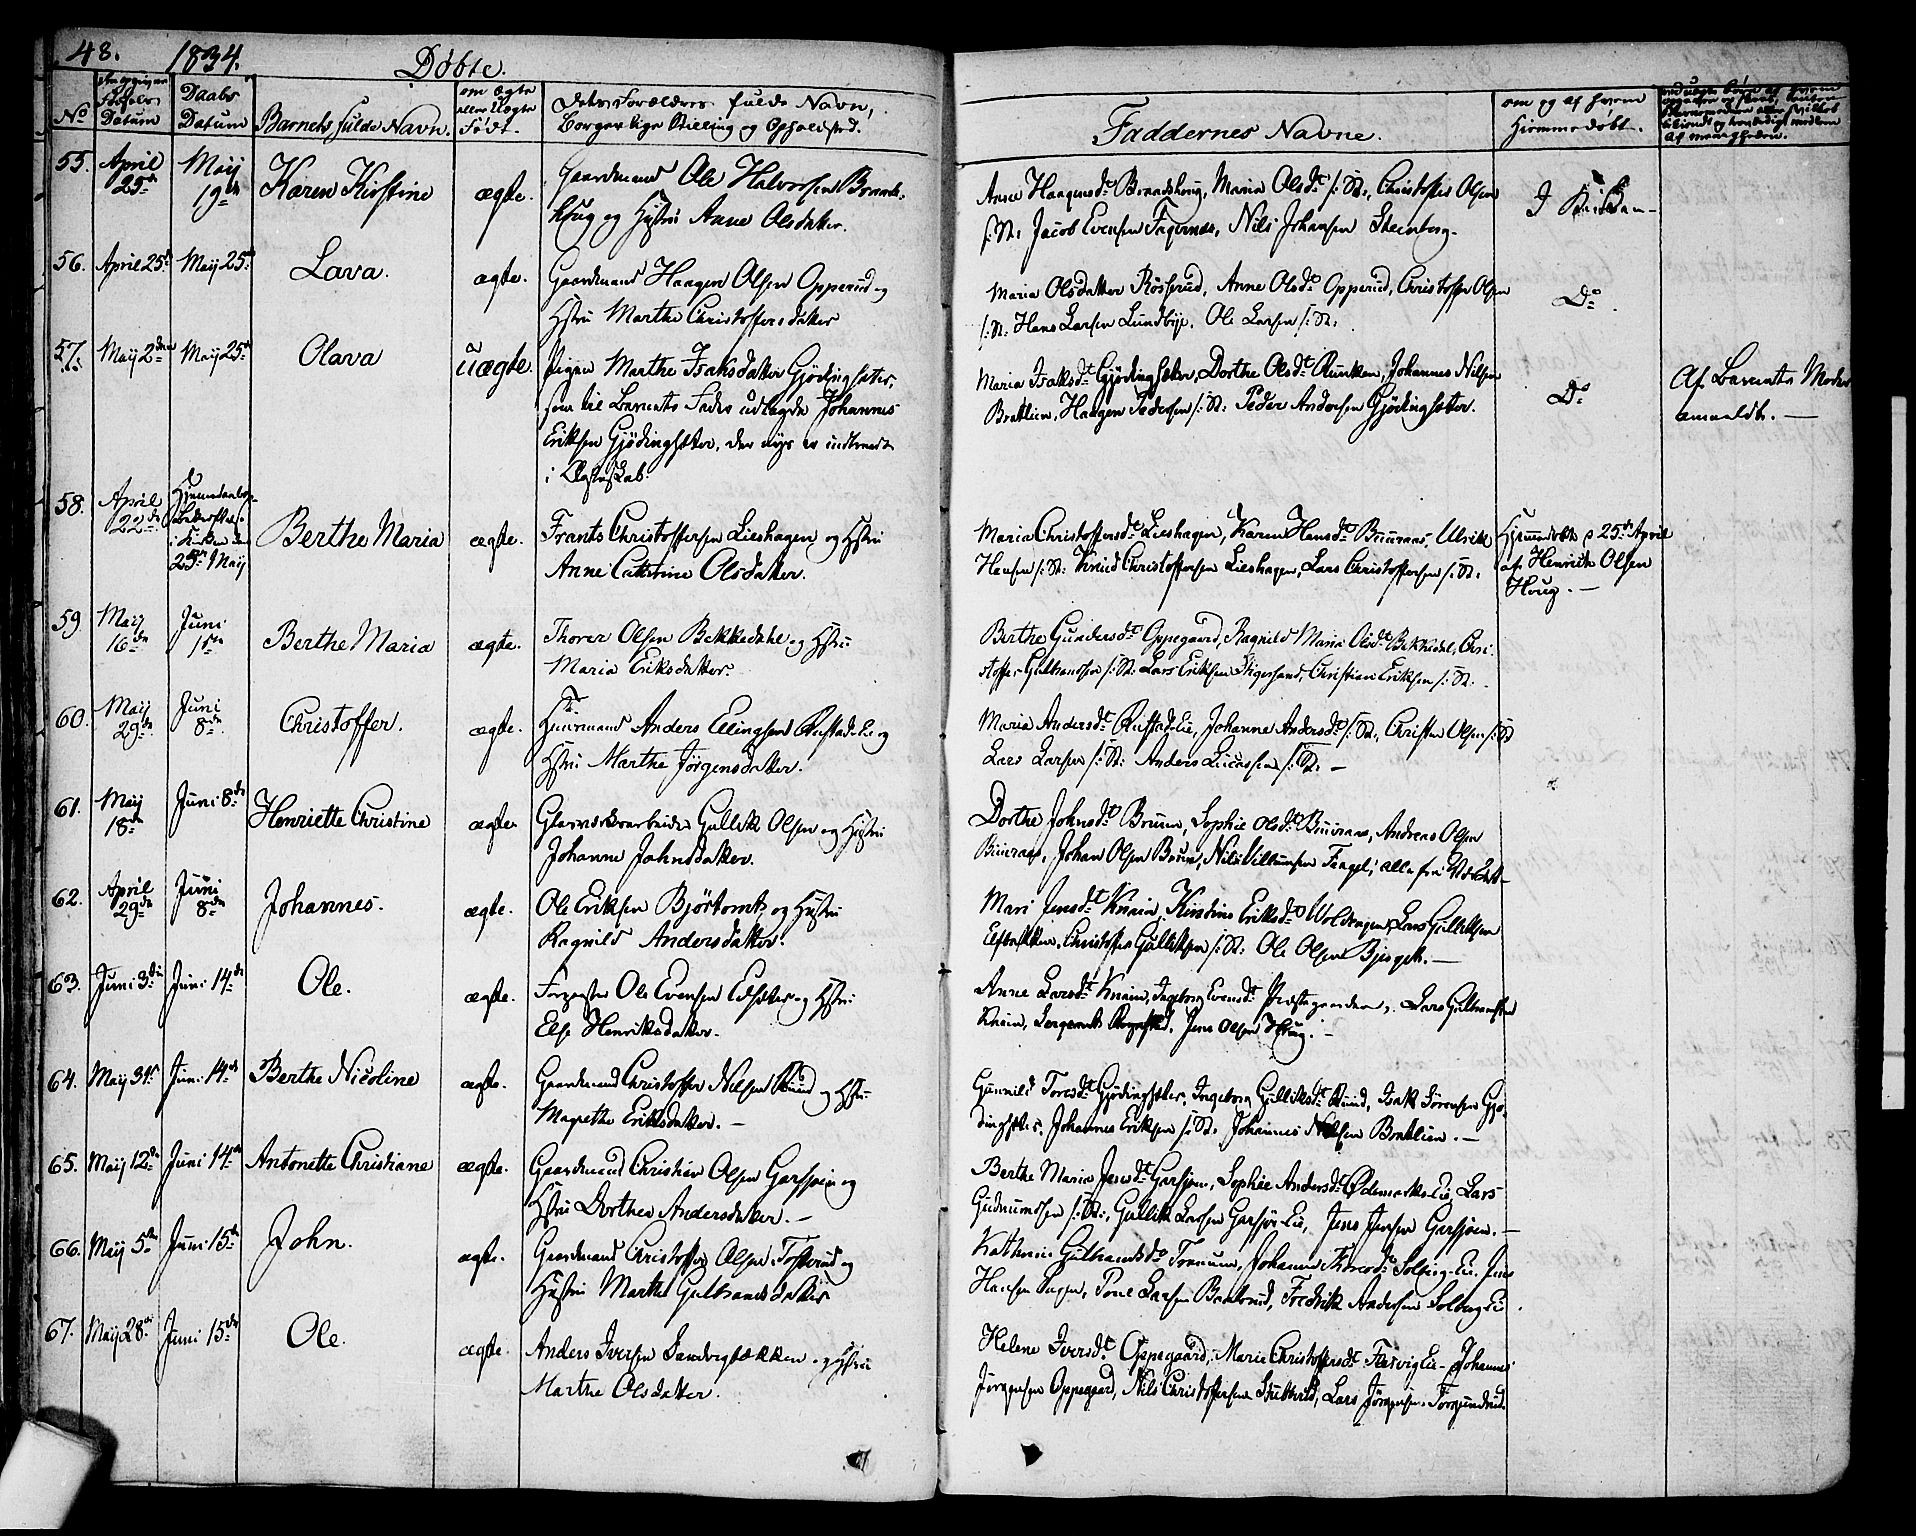 48. 1834. Døbte.
No Datum Daabs Datum Barnets fulde Navn. om Ægte eller Uægte Født. Forældres fulde Navn, Borgerlige Stilling og Opholdsted. Faddernes Navne. om og af hvem Hjemmedøbt.
55. April 25de May 19de Karen Kirstine ægte. Gaardmand Ole Halvorsen Brands-
houg og Hustru Anne Olsdatter.
Anne Haagensdt Brandshoug, Maria Olsdt /: St:, Christoffer Olsen
/: St: Jacob Evensen Fagernæs, Nils Johansen Steenberg.
I Kirken
56. April 25de May 25de Lava. ægte. Gaardmand Haagen Olsen Opperud og
Hstru Marthe Christoffersdatter
Maria Olsdatter Røsserud, Anne Olsdt Opperud, Christoffer Olsen
/: St: Hans Larsen Lundbye, Ole Larsen /: St:
Do
57. May 2den May 25de Olava uægte. Pigen Marthe Isaksdatter Gjødingsæter,
som til Barnets Fader udlagde Johannes
Eriksen Gjødingsæter, der nys er indtraadt
i Ægteskab.
Maria Isaksdt Gjødingsæter, Dorthe Olsdt Runken, Johannes Nilsen
Bratlien, Haagen Pedersen /: St: Peder Andersen Gjødingsæter.
Do Af Barnets Moder
anmeldt.
58. April 22de Hjemmedaab
i Kirken den
25de May Berthe Maria ægte. Frants Christoffersen Lieshagen og Hstru
Anne Cathrine Olsdatter.
Maria Christoffersdt Lieshagen, Karen Hansdt Buuraas, Ulrikke
Hansen /: St: Knud Christoffersen Lieshagen, Lars Christoffersen /: St:
Hjemmedøbt d 25de April
af Henrich Olsen
Houg.
59 May 16de Juni 1ste Berthe Maria ægte. Thorer Olsen Bekkedahl og Hstru
Maria Eriksdatter.
Berthe Gundersdt Oppegaard, Ragnild Maria Olsdt Bekkedal, Chri-
stoffer Gulbrandsen /: St: Lars Eriksen Stigersand, Christian Eriksen /: St:
60. May 29de Juni 8de Christoffer. ægte. Huusmand Anders Ellingsen Rustad-Eie og
Hstru Marthe Jørgensdatter.
Maria Andersdt Rustad-Eie, Johanne Andersdt /: St:, Christen Olsen /: St
Lars Larsen /: St: Anders Lucassen /: St:
61. May 18de Juni 8de Henriette Christine ægte. Glasværksarbeider Gullik Olsen og Hustru
Johanne Johnsdatter.
Dorthe Johnsdt Bruun, Sophie Olsdt Buuraas, Andreas Olsen
Buuraas, Johan Olsen Bruun, Nils Villumsen Fangel, alle fra
62. April 29de Juni 8de Johannes. ægte. Ole Eriksen Bjørtomt og Hustru
Ragnild Andersdatter.
Mari Jensdt Knain, Kirstine Eriksdt Woldengen, Lars Gulliksen
Christoffer Gulliksen /: St: Ole Olsen
63. Juni 3die Juni 14de Ole. ægte. Ole Evensen Edsæter og Hstru
Else Henriksdatter.
Anne Larsdt Knain, Ingeborg Evensdt Præstegaarden, Lars Gulbrandsen
Knain, Sergeant Jens Olsen Houg.
64. May 31te Juni 14de Berthe Nicoline ægte. Gaardmand Christoffer Nilsen Ruud og Hstru
Magrethe Eriksdatter.
Gunnild Toresdt Gjødingsæter, Ingeborg Gulliksdt Ruud, Isak Sørensen Gjø-
dingsæter, Johannes Eriksen /: St: Johannes Nilsen Bratlien.
65. May 12de Juni 14de Antonette Christiane ægte. Gaardmand Christian Olsen Garsjøen og
Hstru Dorthea Andersdatter.
Berthe Maria Jensdt Garsjøen, Sophie Andersdt Ødemarks-Eie, Lars
Gudmundsen /: St:, Gullik Larsen Garsjø-Eie, Jens Jensen Garsjøen.
66. May 5te Juni 15de John. ægte. Gaardmand Christoffer Olsen Tosterud og
Hustru Marthe Gulbrandsdatter
Kathrine Gulbrandsdt Tomum, Johanne Solberg-Eie, Jens
Hansen Hagen, Poul Larsen Fredrik Andersen Solberg Eie.
67. May 28de Juni 15de Ole. ægte. Anders Iversen Sandvigbækken og Hstru
Marthe Olsdatter.
Helene Iversdt Oppegaard, Marie Christoffersdt Eie, Johannes
Jørgensen Oppegaard, Nils Christoffersen Lars Jørgensen